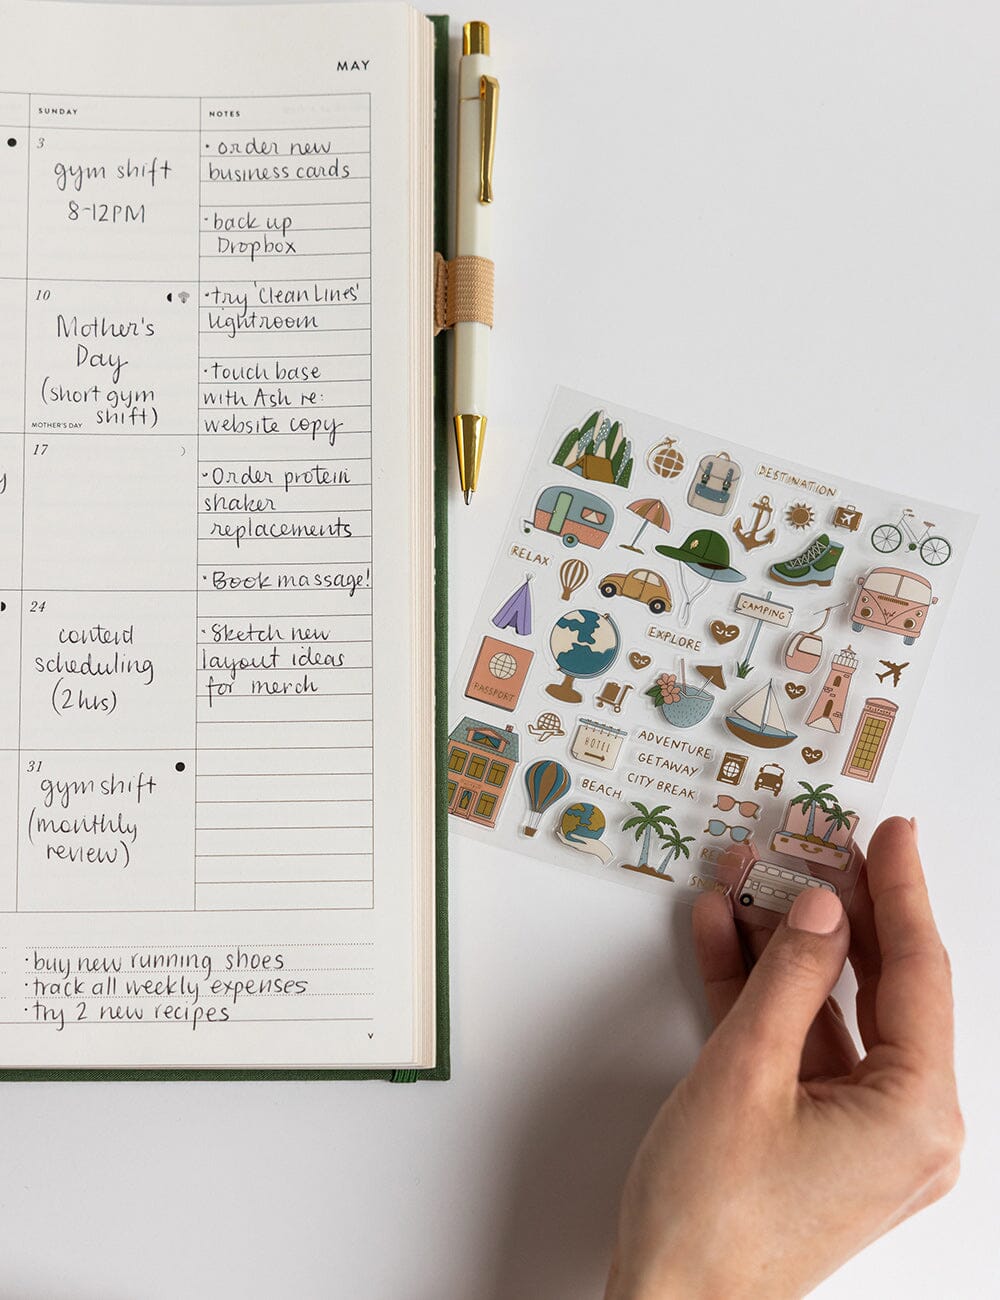 MAY
SUNDAY
NOTES
3
gym shift
8-12PM
• order new
business cards
• back up
Dropbox
10
Mother's
Day
(short gym
shift)
MOTHER'S DAY
• try 'Clean Lines'
lightroom
• touch base
with Ash re:
website copy
17
• Order protein
shaker
replacements
• Book massage!
24
content
scheduling
(2hrs)
• Sketch new
layout ideas
for merch
31
gym shift
(monthly
review)
• buy new running shoes
• track all weekly expenses
• try 2 new recipes
V
DESTINATION
RELAX
CAMPING
EXPLORE
PASSPORT
TELEPHONE
HOTEL
ADVENTURE
GETAWAY
CITY BREAK
BEACH
SNOW